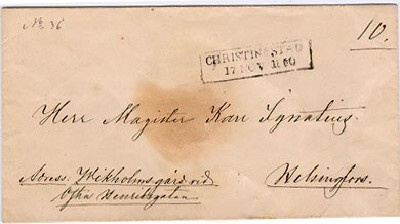 No 36
10.
CHRISTINESTAD
17 NOV 1860
Herr Magister Karl Ignatius.
Adress. Wikholms gård vid
Östra Henriksgatan
Helsingfors.